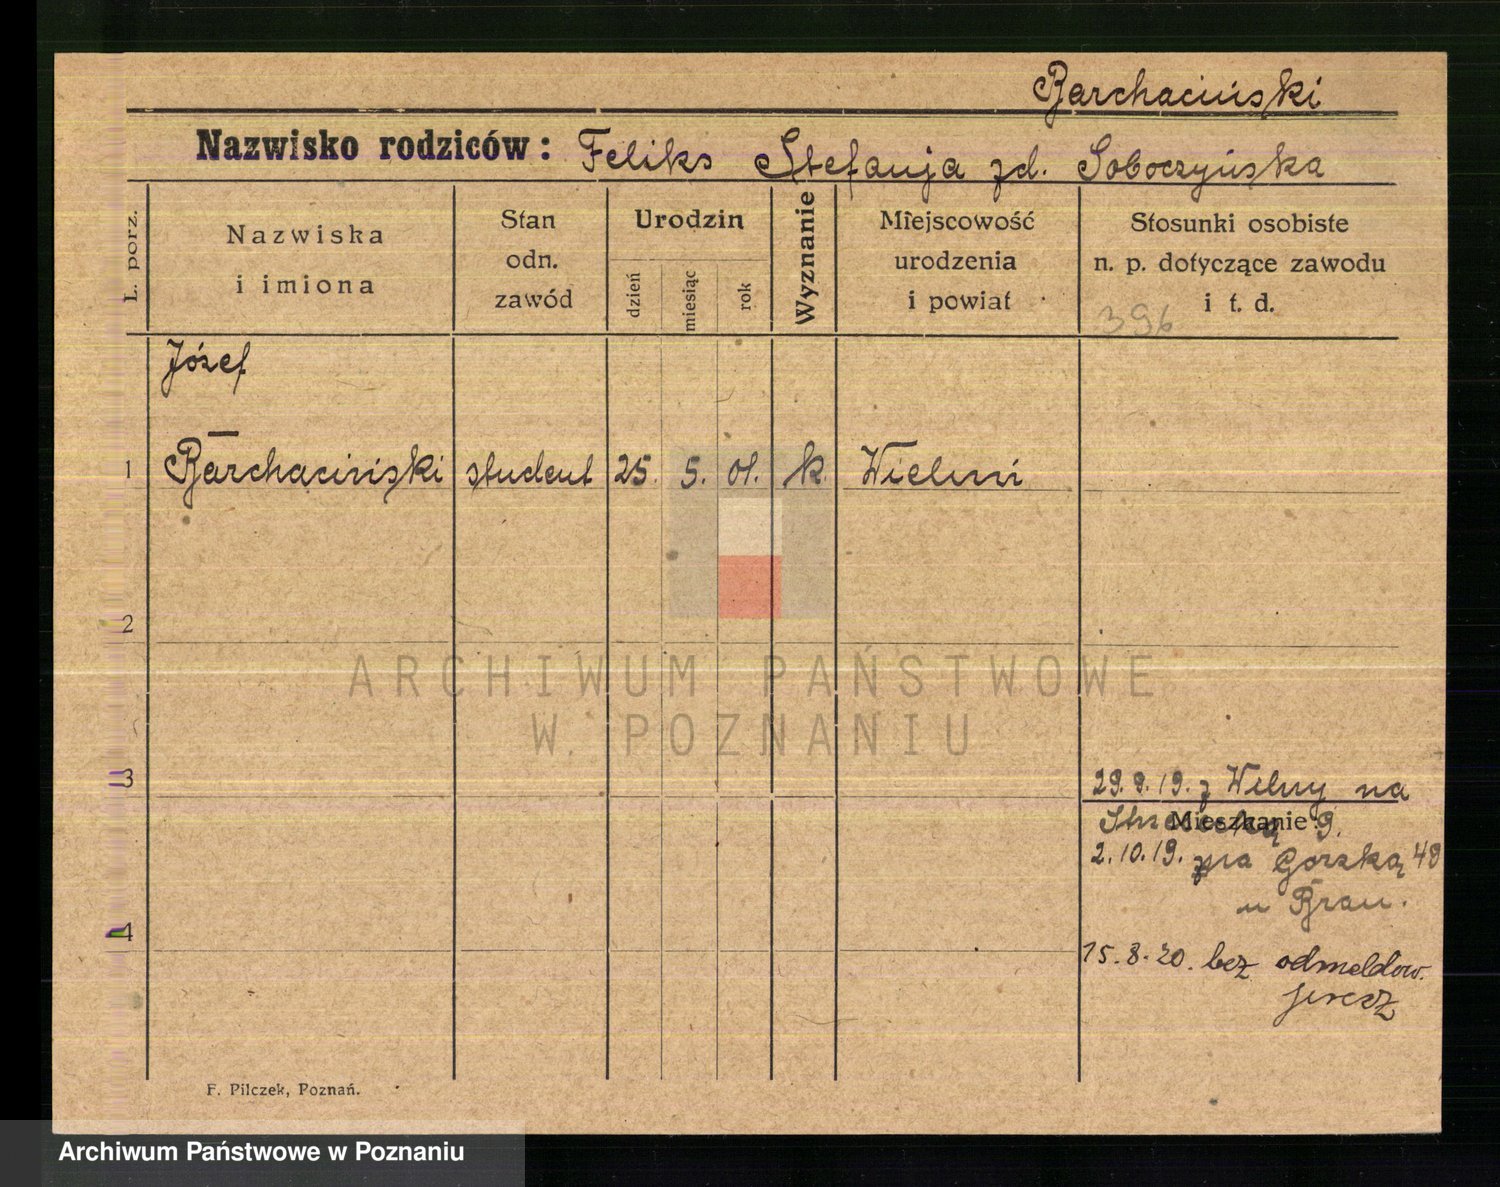 Barchaciński
Nazwisko rodziców: Feliks Stefanja zd. Soboczyńska
L. porz.
Nazwiska
i imiona
Stan
odn.
zawód
Urodzin
dzień
miesiąc
rok
Wyznanie
Miejscowość
urodzenia
i powiat
Stosunki osobiste
n. p. dotyczące zawodu
i t. d.
396
Józef
1 Barchaciński student 25. 5. 01. k. Wieluń
2
ARCHIWUM PAŃSTWOWE
W POZNANIU
3
29. 9. 19. z Wilny na
Mieszkanie: 9.
2. 10. 19. na Górską 48
u Brau.
4
15. 8. 20. bez odmeldow.
F. Pilczek, Poznań.
Archiwum Państwowe w Poznaniu